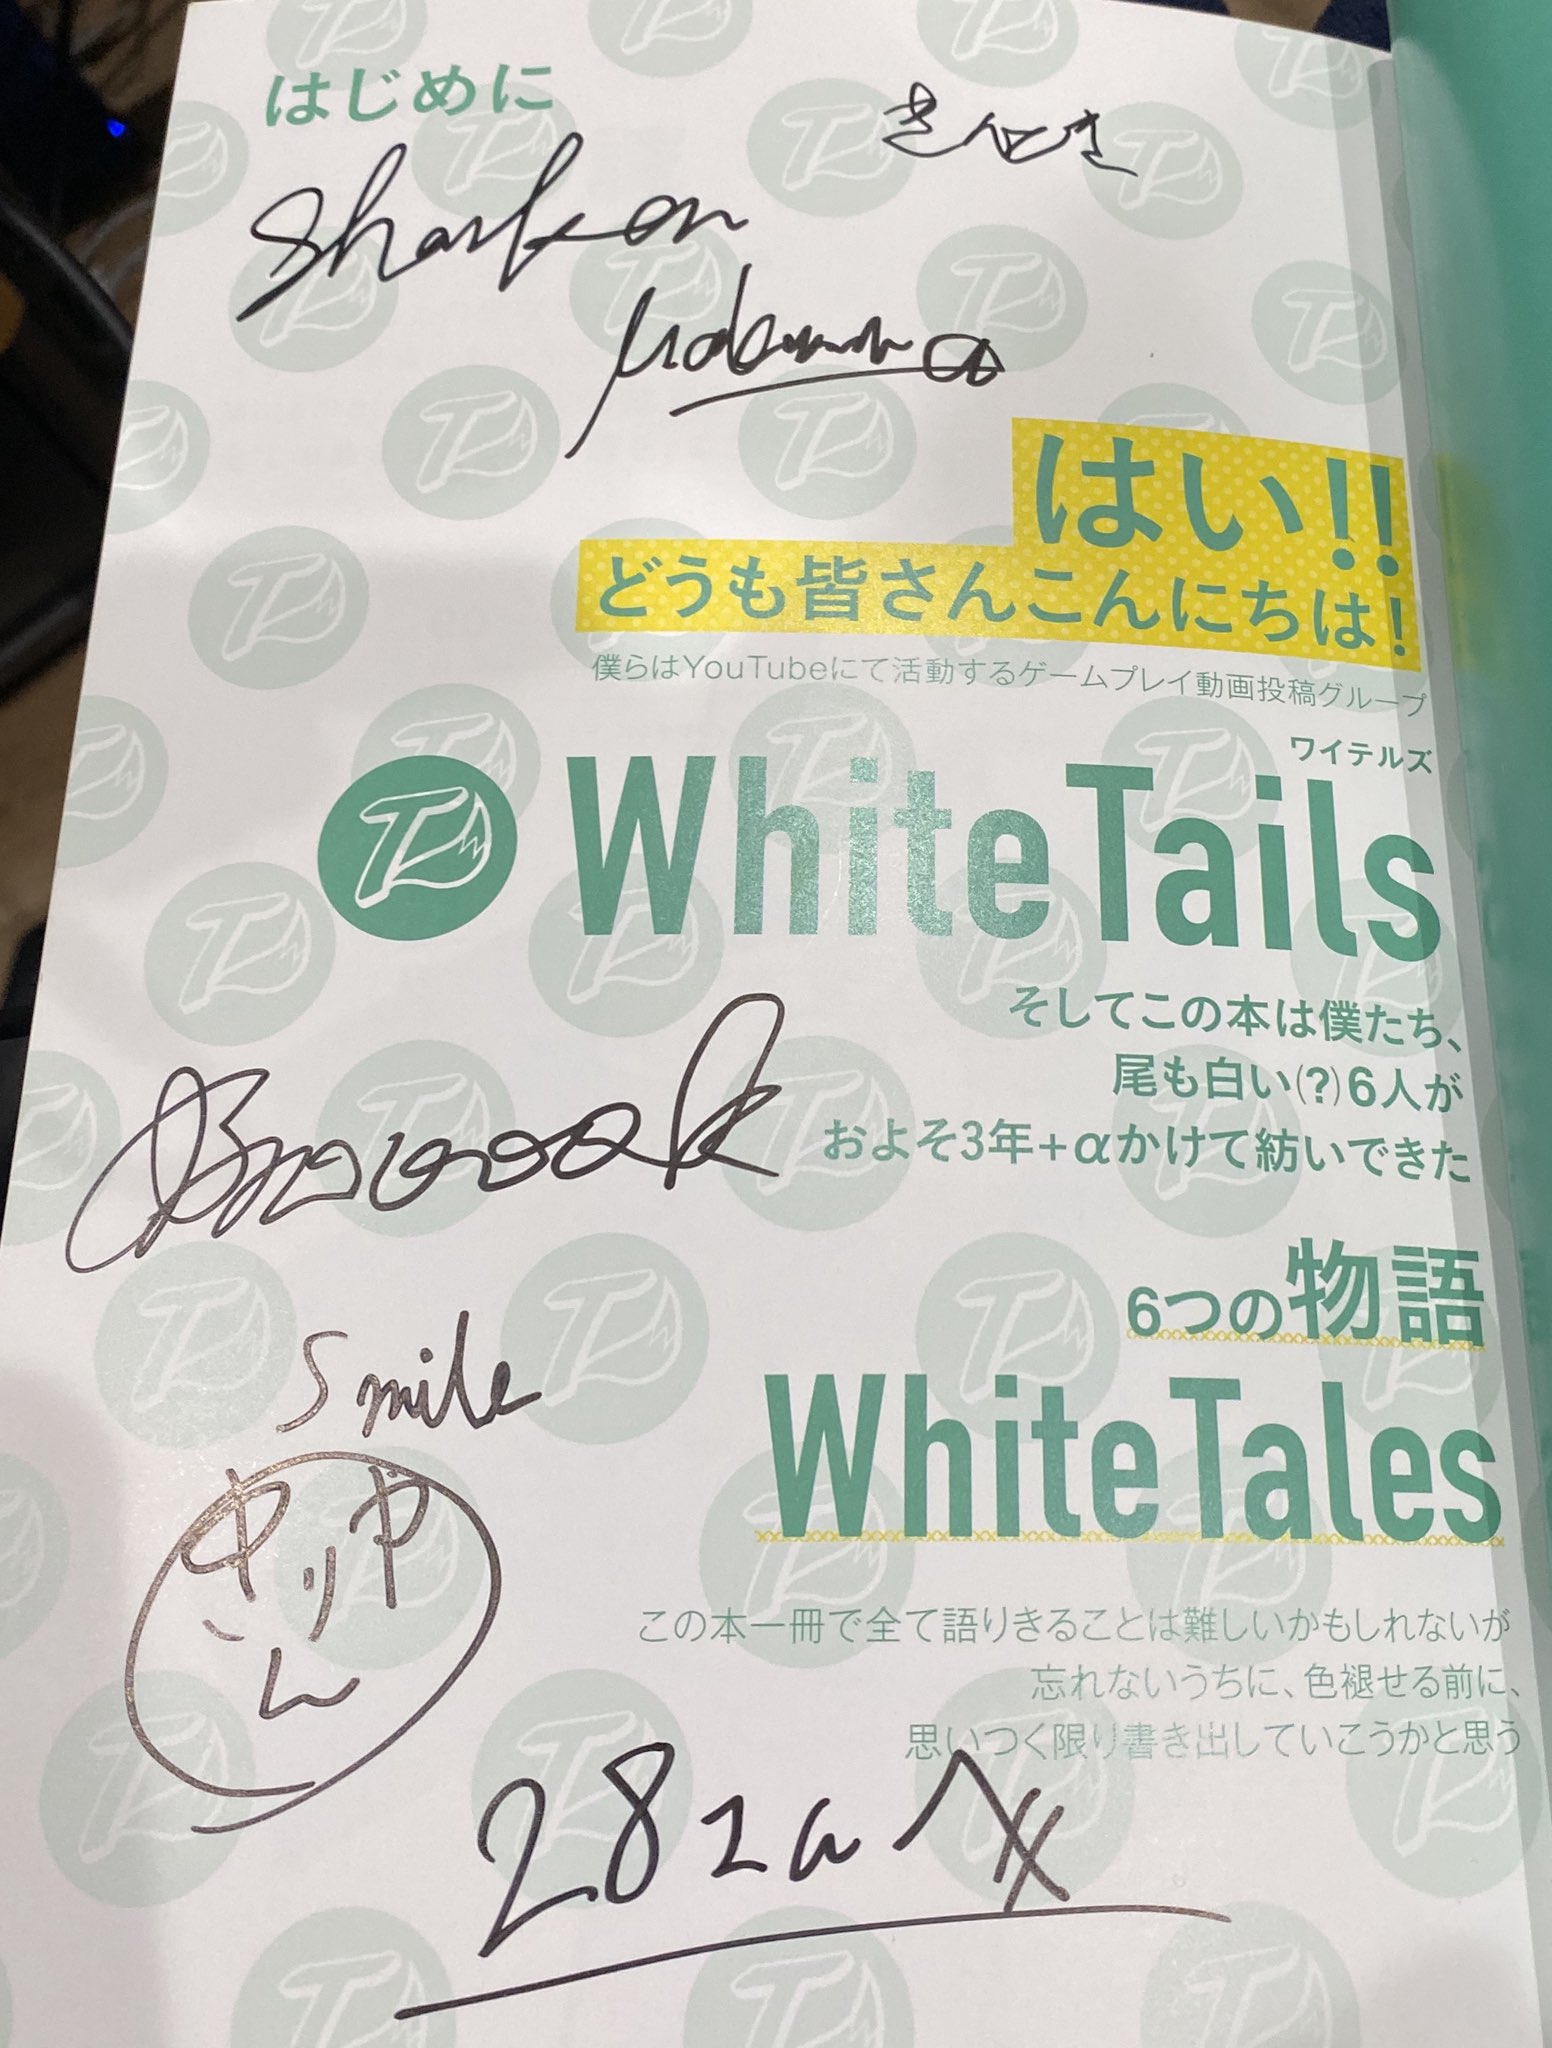 はじめに
きんとき
Sharkon
Nakamu
はい!!
どうも皆さんこんにちは!
僕らはYouTubeにて活動するゲームプレイ動画投稿グループ
ワイテルズ
WhiteTails
そしてこの本は僕たち、
尾も白い(?)6人が
およそ3年+αかけて紡いできた
Broooock
6つの物語
Smile
WhiteTales
この本一冊で全て語りきることは難しいかもしれないが
忘れないうちに、色褪せる前に、
思いつく限り書き出していこうかと思う